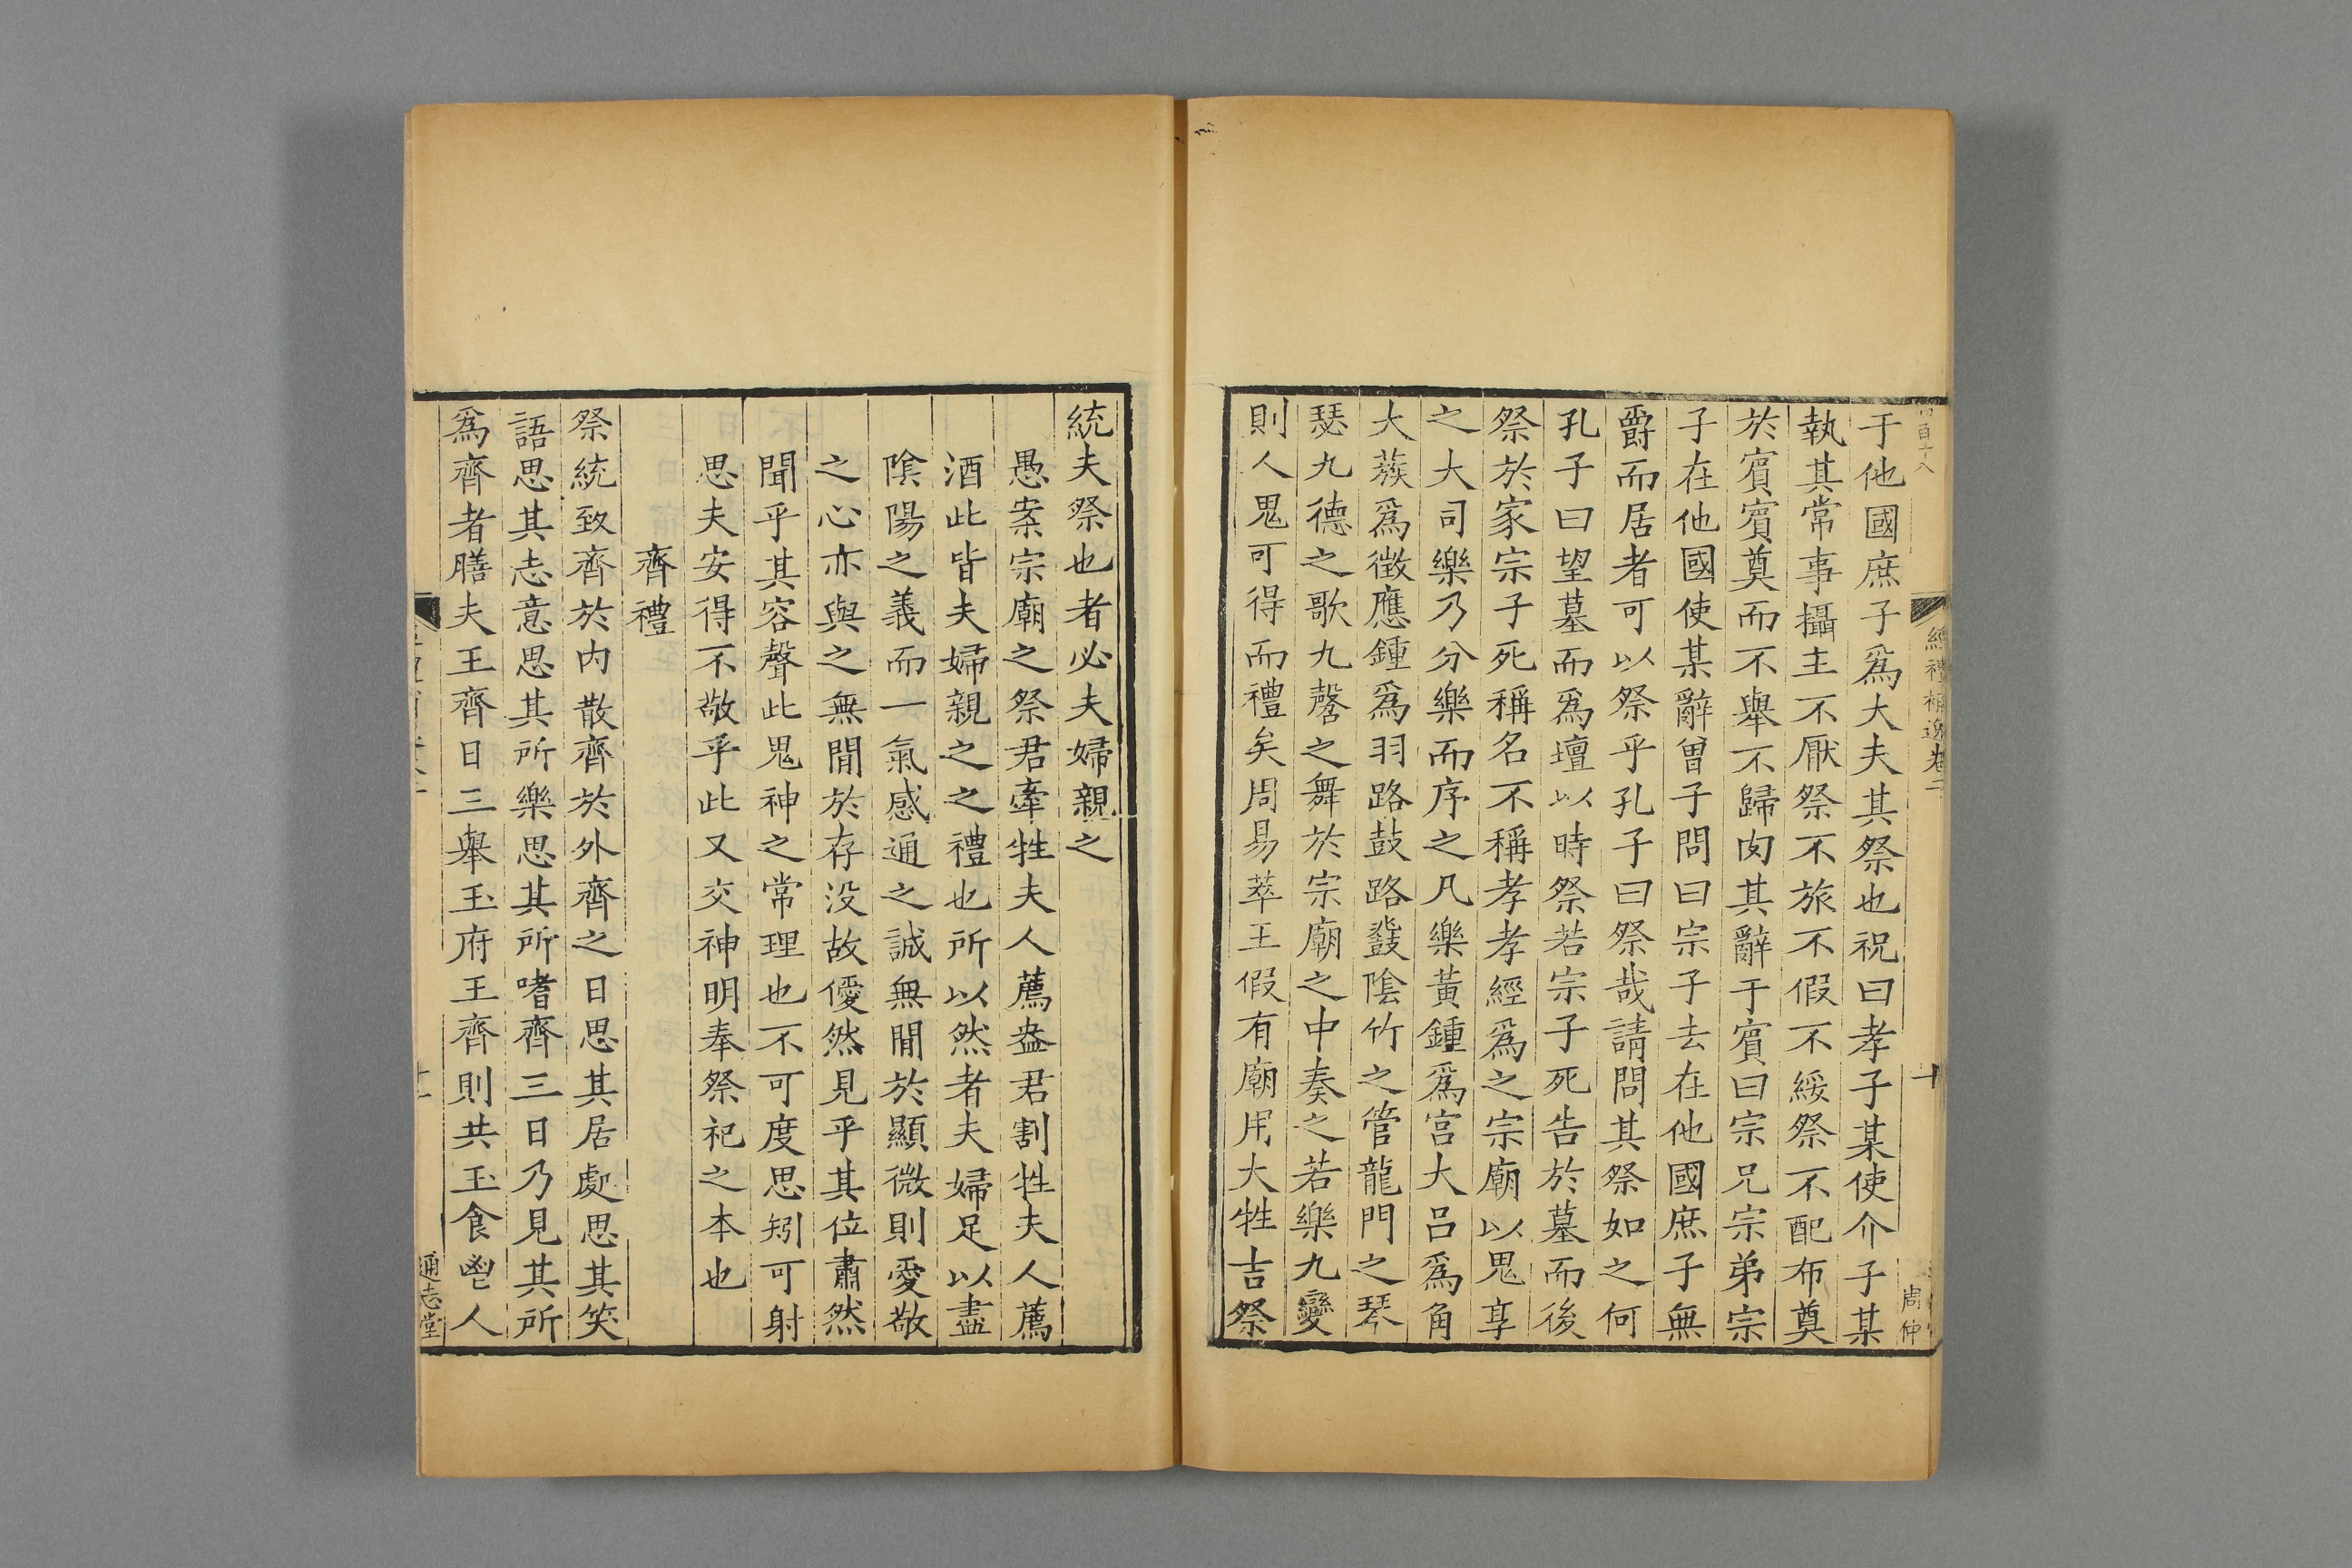 經禮補逸卷二
十
周仲
于他國庶子爲大夫其祭也祝曰孝子某使介子某
執其常事攝主不厭祭不旅不假不綏祭不配布奠
於賓賓奠而不舉不歸肉其辭于賓曰宗兄宗弟宗
子在他國使某辭曾子問曰宗子去在他國庶子無
爵而居者可以祭乎孔子曰祭哉請問其祭如之何
孔子曰望墓而爲壇以時祭若宗子死告於墓而後
祭於家宗子死稱名不稱孝孝經爲之宗廟以鬼享
之大司樂乃分樂而序之凡樂黃鍾爲宮大呂爲角
大蔟爲徵應鍾爲羽路鼓路鼗陰竹之管龍門之琴
瑟九德之歌九磬之舞於宗廟之中奏之若樂九變
則人鬼可得而禮矣周易萃王假有廟用大牲吉祭
統夫祭也者必夫婦親之
愚案宗廟之祭君牽牲夫人薦盎君割牲夫人薦
酒此皆夫婦親之之禮也所以然者夫婦足以盡
陰陽之義而一氣感通之誠無間於顯微則愛敬
之心亦與之無間於存没故僾然見乎其位肅然
聞乎其容聲此鬼神之常理也不可度思矧可射
思夫安得不敬乎此又交神明奉祭祀之本也
齊禮
祭統致齊於内散齊於外齊之日思其居處思其笑
語思其志意思其所樂思其所嗜齊三日乃見其所
爲齊者膳夫王齊日三舉玉府王齊則共玉食鬯人
通志堂